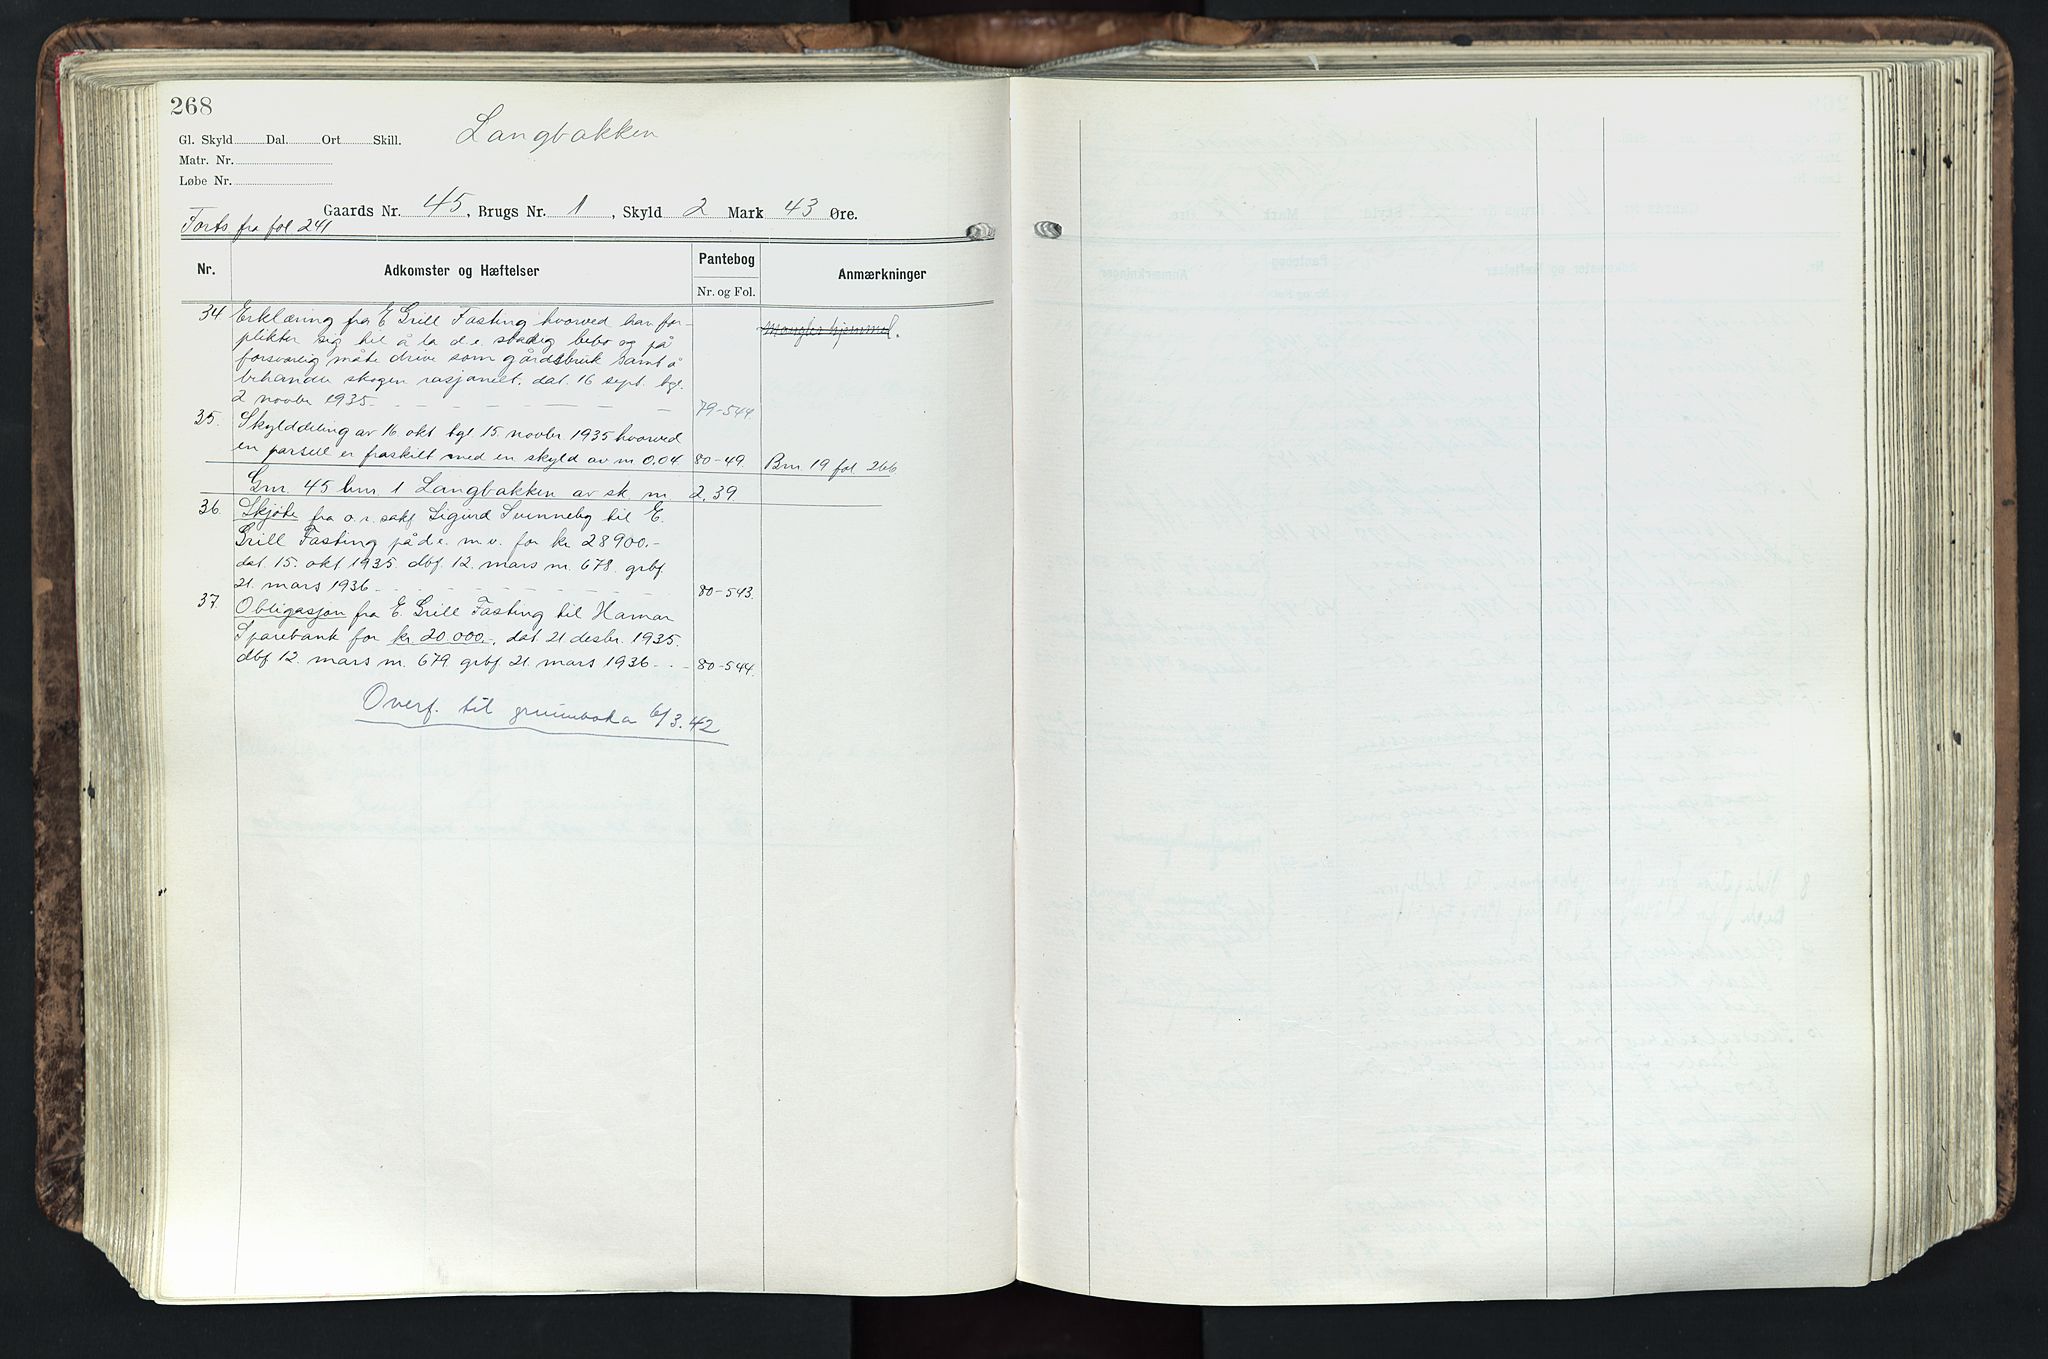 268
Langbakken
Gl. Skyld Dal. Ort Skill.
Matr. Nr.
Løbe Nr.
Gaards Nr. 45, Brugs Nr. 1, Skyld 2 Mark 43 Øre.
Forts fra fol 241
Nr. Adkomster og Hæftelser Pantebog Anmærkninger
Nr. og Fol.
34 Erklæring fra E Grill Fasting hvorved han for- Mangler hjemmel.
plikter sig til å la d.e. stadig bebo og på
forsvarlig måte drive som gårdsbruk samt å
behandle skogen rasjonelt. dat. 16 sept. tgl.
2 novbr 1935. 79-544
35. Skylddeling av 16. okt tgl. 15. novbr. 1935 hvorved
en parsell er fraskilt med en skyld av m 0.04. 80-49. Bnr. 19 fol 266
Gnr. 45 bnr. 1 Langbakken av sk. m 2.39
36. Skjøte fra o.r.sakf Sigurd Svinneby til E.
Grill Fasting på d.e. m.v. for kr 28900.-
dat. 15. okt 1935. dbf 12. mars nr. 678. grbf
21. mars 1936 80-543.
37. Obligasjon fra E. Grill Fasting til Hamar
Sparebank for kr. 20.000.-, dat 21 desbr. 1935.
dbf 12. mars nr. 679. grbf 21. mars 1936 80-544.
Overf. til grunnboka 6/3.42